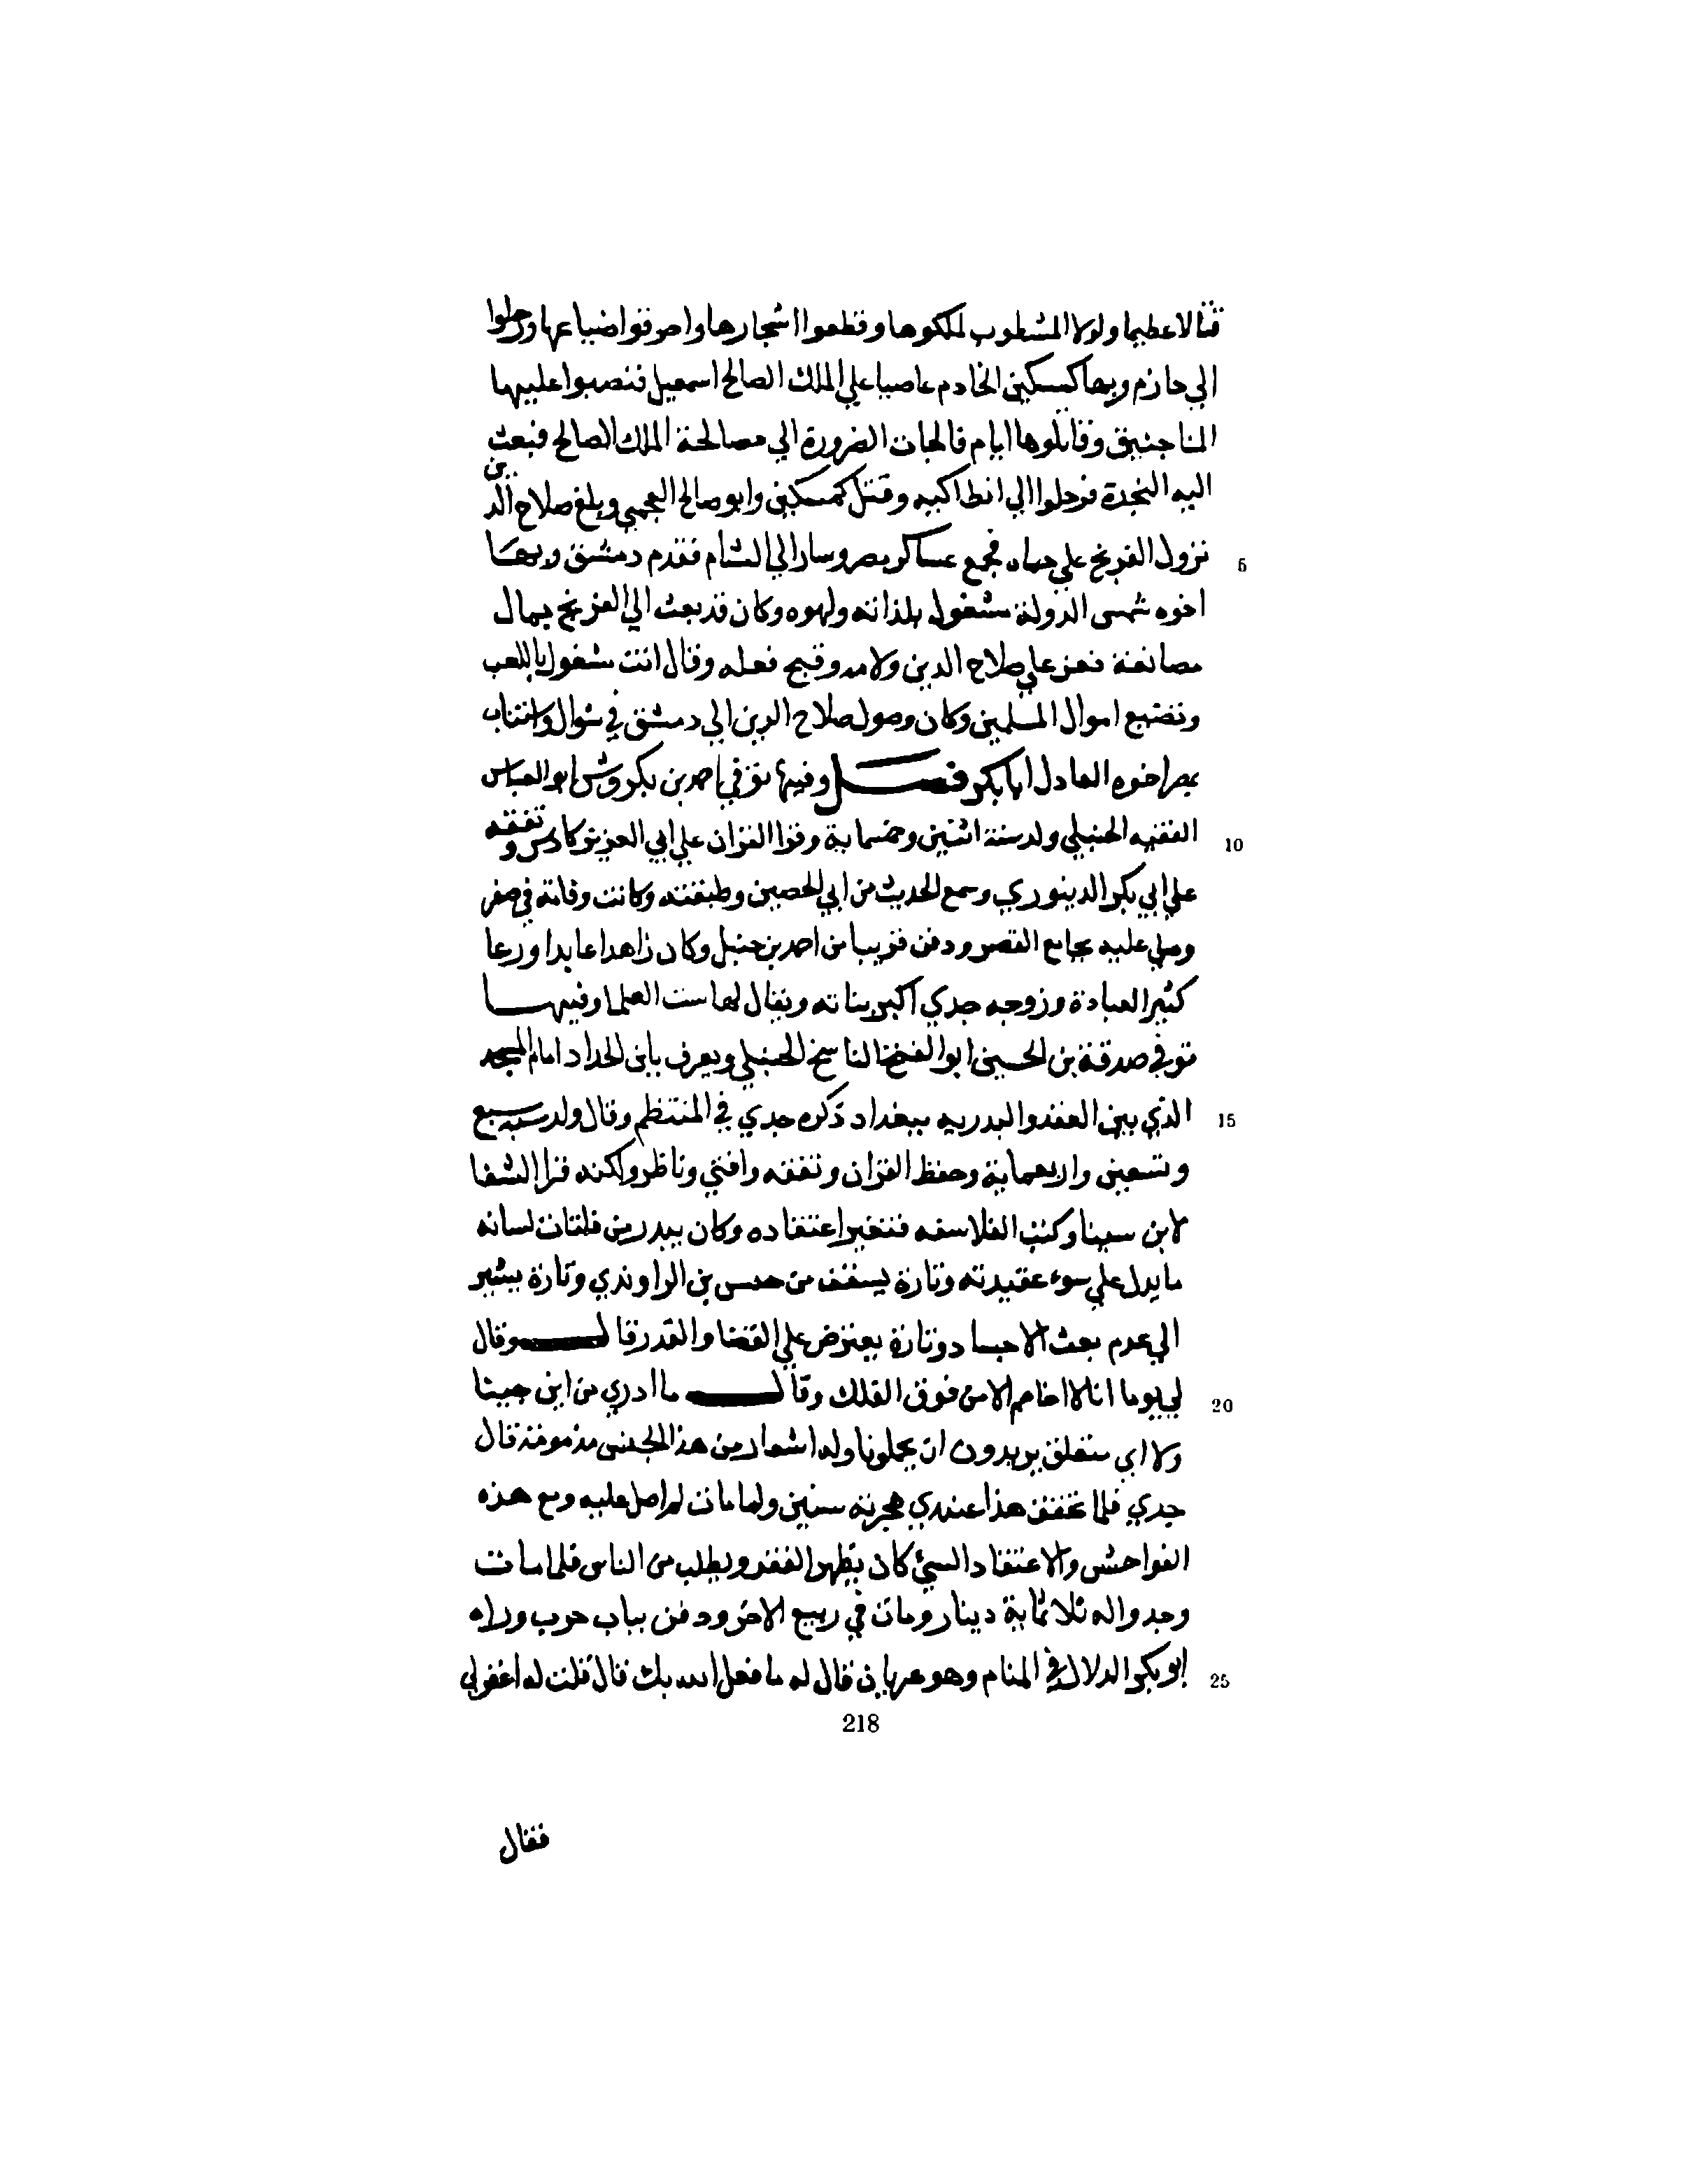 قتالا عظيما ولولا المشطوب لملكوها وقطعوا اشجارها واحرقوا ضياعها ورحلوا
الي حازم وبها كمسكين الخادم عاصيا علي الملك الصالح اسمعيل فنصبوا عليها
المناجنيق وقاتلوها ايام فالجات الضرورة الي مصالحة الملك الصالح فبعث
اليه النجدة فرحلوا الي انطاكيه وقتل كمسكين وابو صالح العجمي وبلغ صلاح الدين
نزول الفرنج علي حماه فجمع عساكر مصر وسار الي الشام فقدم دمشق وبها
5
اخوه شمس الدولة مشغول بلذاته ولهوه وكان قد بعث الي الفرنج بمال
مصانعة فعز علي صلاح الدين ولامه وقبح فعله وقال انت مشغول باللعب
وتضيع اموال المسلمين وكان وصول صلاح الدين الي دمشق في شوال واستناب
بمصر اخوه العادل ابا بكر فصل وفيها توفي احمد بن بكروش ابو العباس
الفقيه الحنبلي ولد سنة اثنتين وخمسماية وقرا القران علي ابي العز وتفقه
10
علي ابي بكر الدينوري وسمع الحديث من ابي الحصين وطبقته وكانت وفاته في صفر
وصلي عليه بجامع القصر ودفن قريبا من احمد بن حنبل وكان زاهدا عابدا ورعا
كثير العبادة وزوجه جدي اكبر بناته ويقال لها ست العلما وفيها
توفي صدقة بن الحسين ابو الفتح الناسخ الحنبلي ويعرف بابن الحداد امام المسجد
الذي بين العقد والبدريه ببغداد ذكره جدي في المنتظم وقال ولد سنة سبع
15
وتسعين واربعماية وحفظ القران وتفقه وافتي وناظر ولكنه قرا الشفا
لابن سينا وكتب الفلاسفه فتغير اعتقاده وكان يبدر من فلتات لسانه
ما يدل علي سوء عقيدته وتارة يسقف من حبس بن الراوندي وتارة يشير
الي عدم بعث الاجساد وتارة يعترض علي القضا والقدر قال وقال
لي يوما انا لا اخاصم الا من فوق الفلك وقال ما ادري من اين جينا
20
ولا اي منغلق يريدون ان يحملونا وله اشعار من هذا الجنس مذمومة قال
جدي فلما تحقق هذا عندي هجرته سنين ولما مات لم اصل عليه ومع هذه
الفواحش والاعتقاد السيئ كان يظهر الفقر ويطلب من الناس فلما مات
وجدوا له ثلاثماية دينار ومات في ربيع الاخر ودفن بباب حرب وراه
ابو بكر الدلال في المنام وهو عريان فقال له ما فعل الله بك فقال قلت له اغفر لي
25
218
فقال